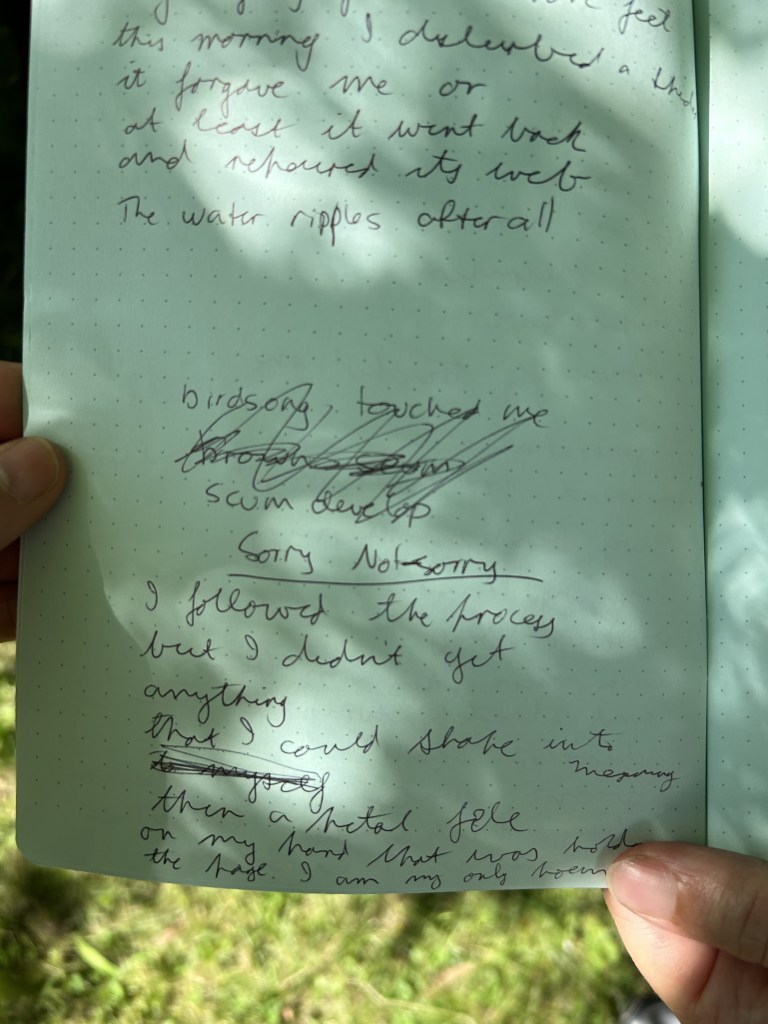 feet
this morning I disturbed a
it forgave me or
at least it went back
and repaired its web
The water ripples after all
birdsong touched me
scum develop
Sorry Not sorry
I followed the process
but I didn't get
anything
that I could shape into
meaning
to myself
then a petal fell
on my hand that was
the page. I am my only